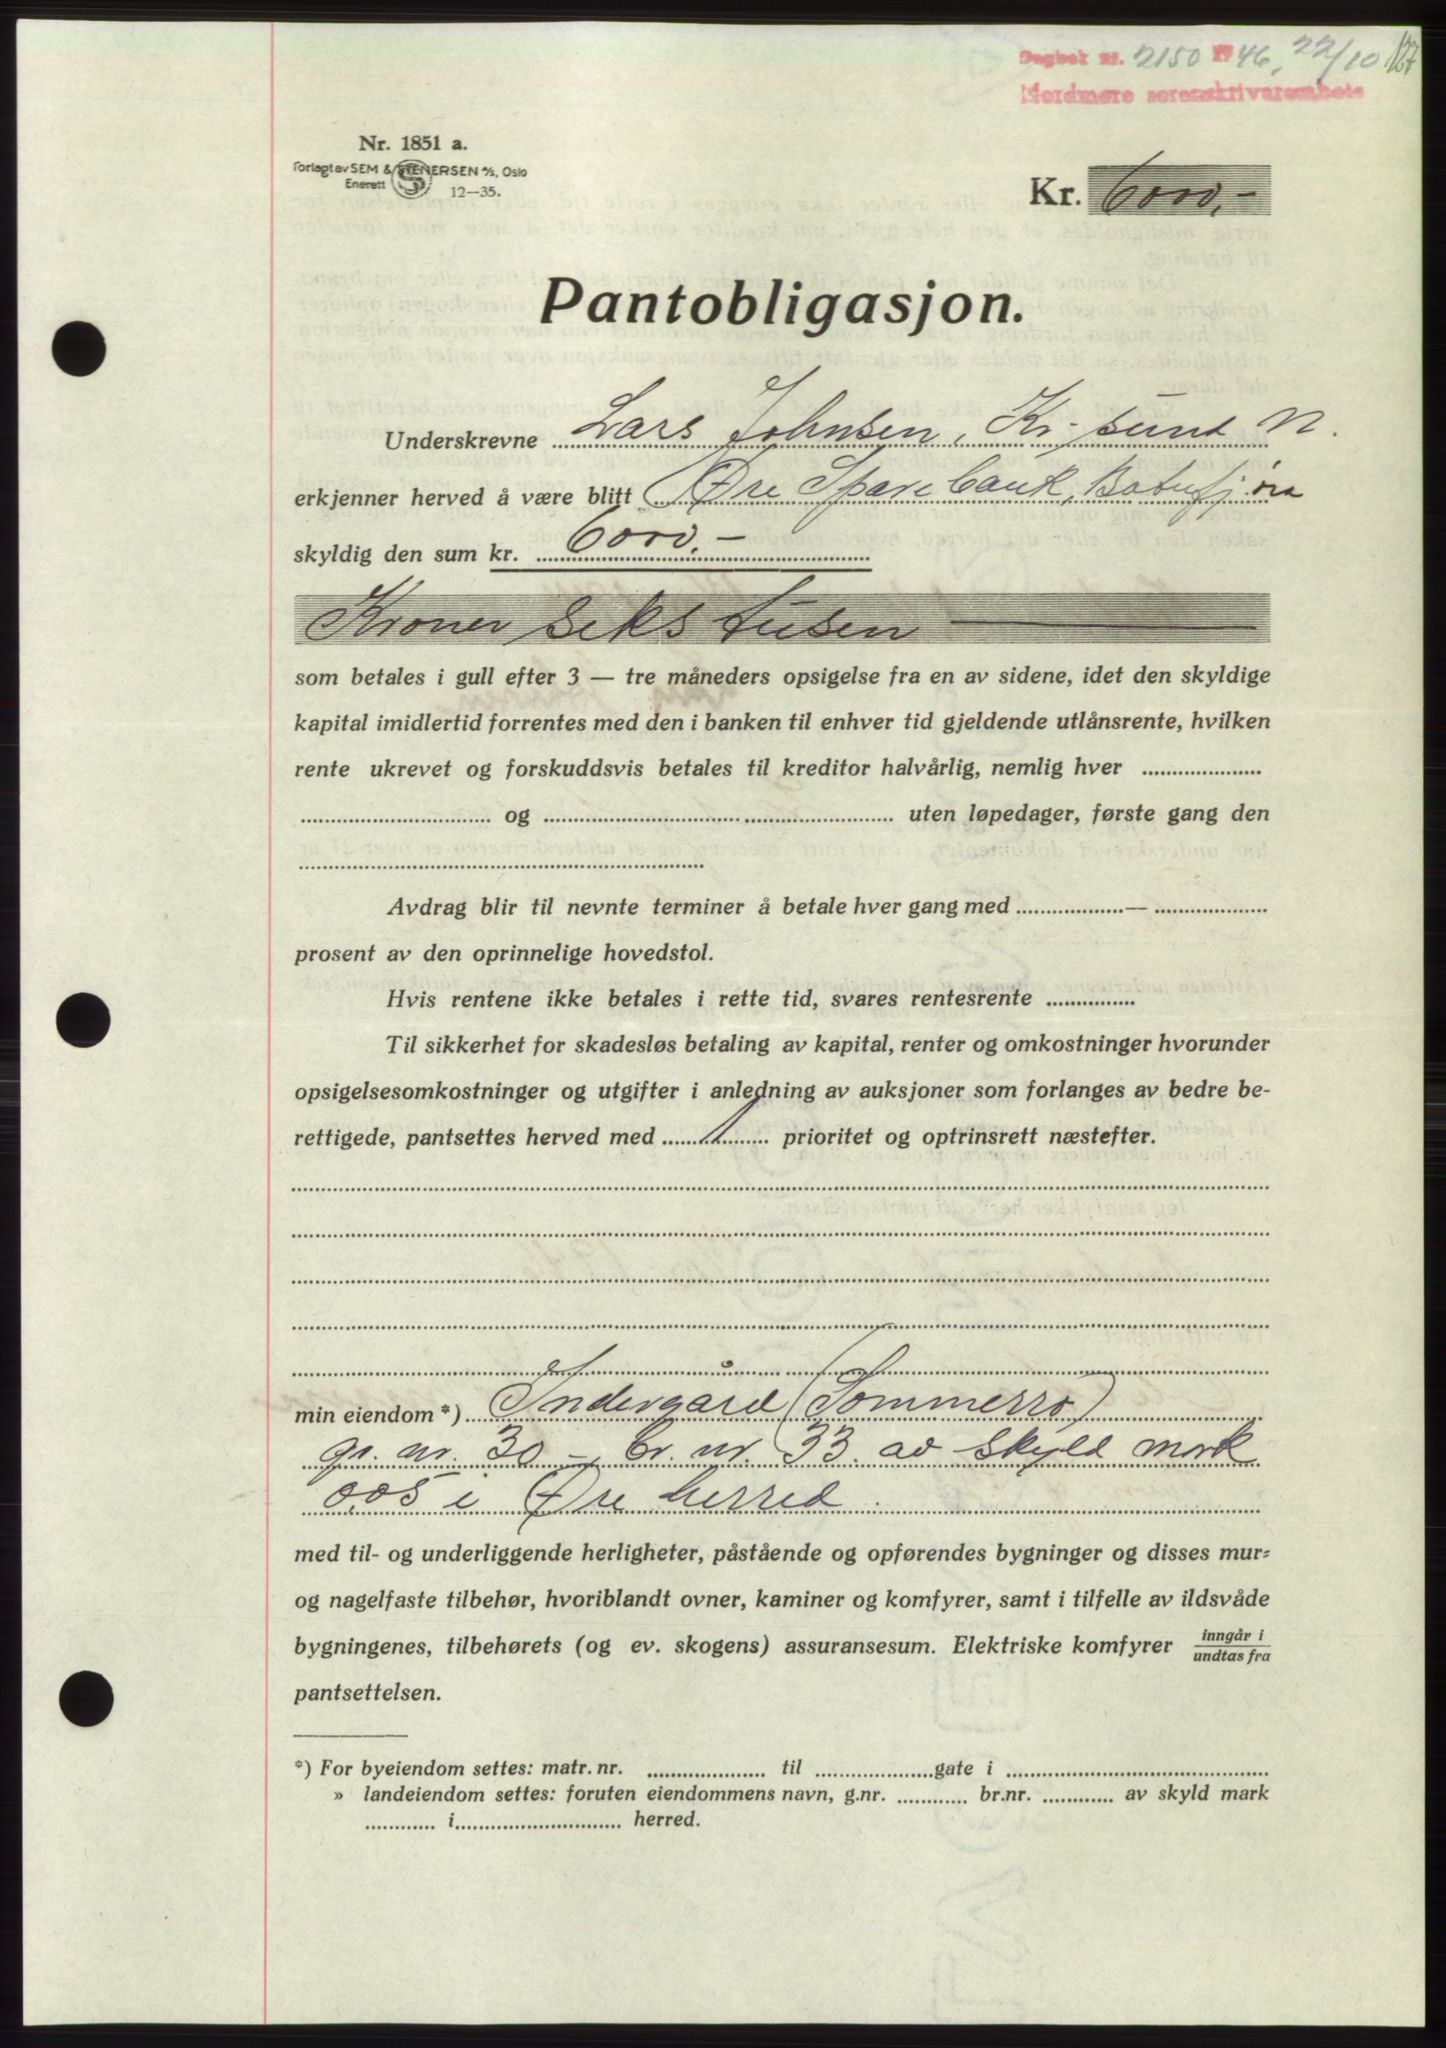 Dagbok nr. 2150 1946, 22/10 127
Nordmøre sorenskriverembete
Nr. 1851 a.
Forlagt av SEM & STENERSEN A/S, Oslo
Enerett 12—35.
Kr. 6000,-
Pantobligasjon.
Underskrevne Lars Johnsen, Kr.sund N.
erkjenner herved å være blitt Øre Sparebank, Batnfjøra
skyldig den sum kr. 6000,-
Kroner seks tusen
som betales i gull efter 3 — tre måneders opsigelse fra en av sidene, idet den skyldige
kapital imidlertid forrentes med den i banken til enhver tid gjeldende utlånsrente, hvilken
rente ukrevet og forskuddsvis betales til kreditor halvårlig, nemlig hver ....................
.............................. og .................................................... uten løpedager, første gang den
..............................................................
Avdrag blir til nevnte terminer å betale hver gang med .................. — ..................
prosent av den oprinnelige hovedstol.
Hvis rentene ikke betales i rette tid, svares rentesrente ...............
Til sikkerhet for skadesløs betaling av kapital, renter og omkostninger hvorunder
opsigelsesomkostninger og utgifter i anledning av auksjoner som forlanges av bedre be-
rettigede, pantsettes herved med 1 prioritet og optrinsrett næstefter.
min eiendom *) Indergaard (Sommerro)
gr. nr. 30 -, br. nr. 33 av skyld mark
0.05 i Øre herred.
med til- og underliggende herligheter, påstående og opførendes bygninger og disses mur-
og nagelfaste tilbehør, hvoriblandt ovner, kaminer og komfyrer, samt i tilfelle av ildsvåde
bygningenes, tilbehørets (og ev. skogens) assuransesum. Elektriske komfyrer inngår i / undtas fra
pantsettelsen.
*) For byeiendom settes: matr. nr. .................... til .................... gate i ........................................
» landeiendom settes: foruten eiendommens navn, g.nr. ............ br.nr. ............ av skyld mark
............ i ............................ herred.